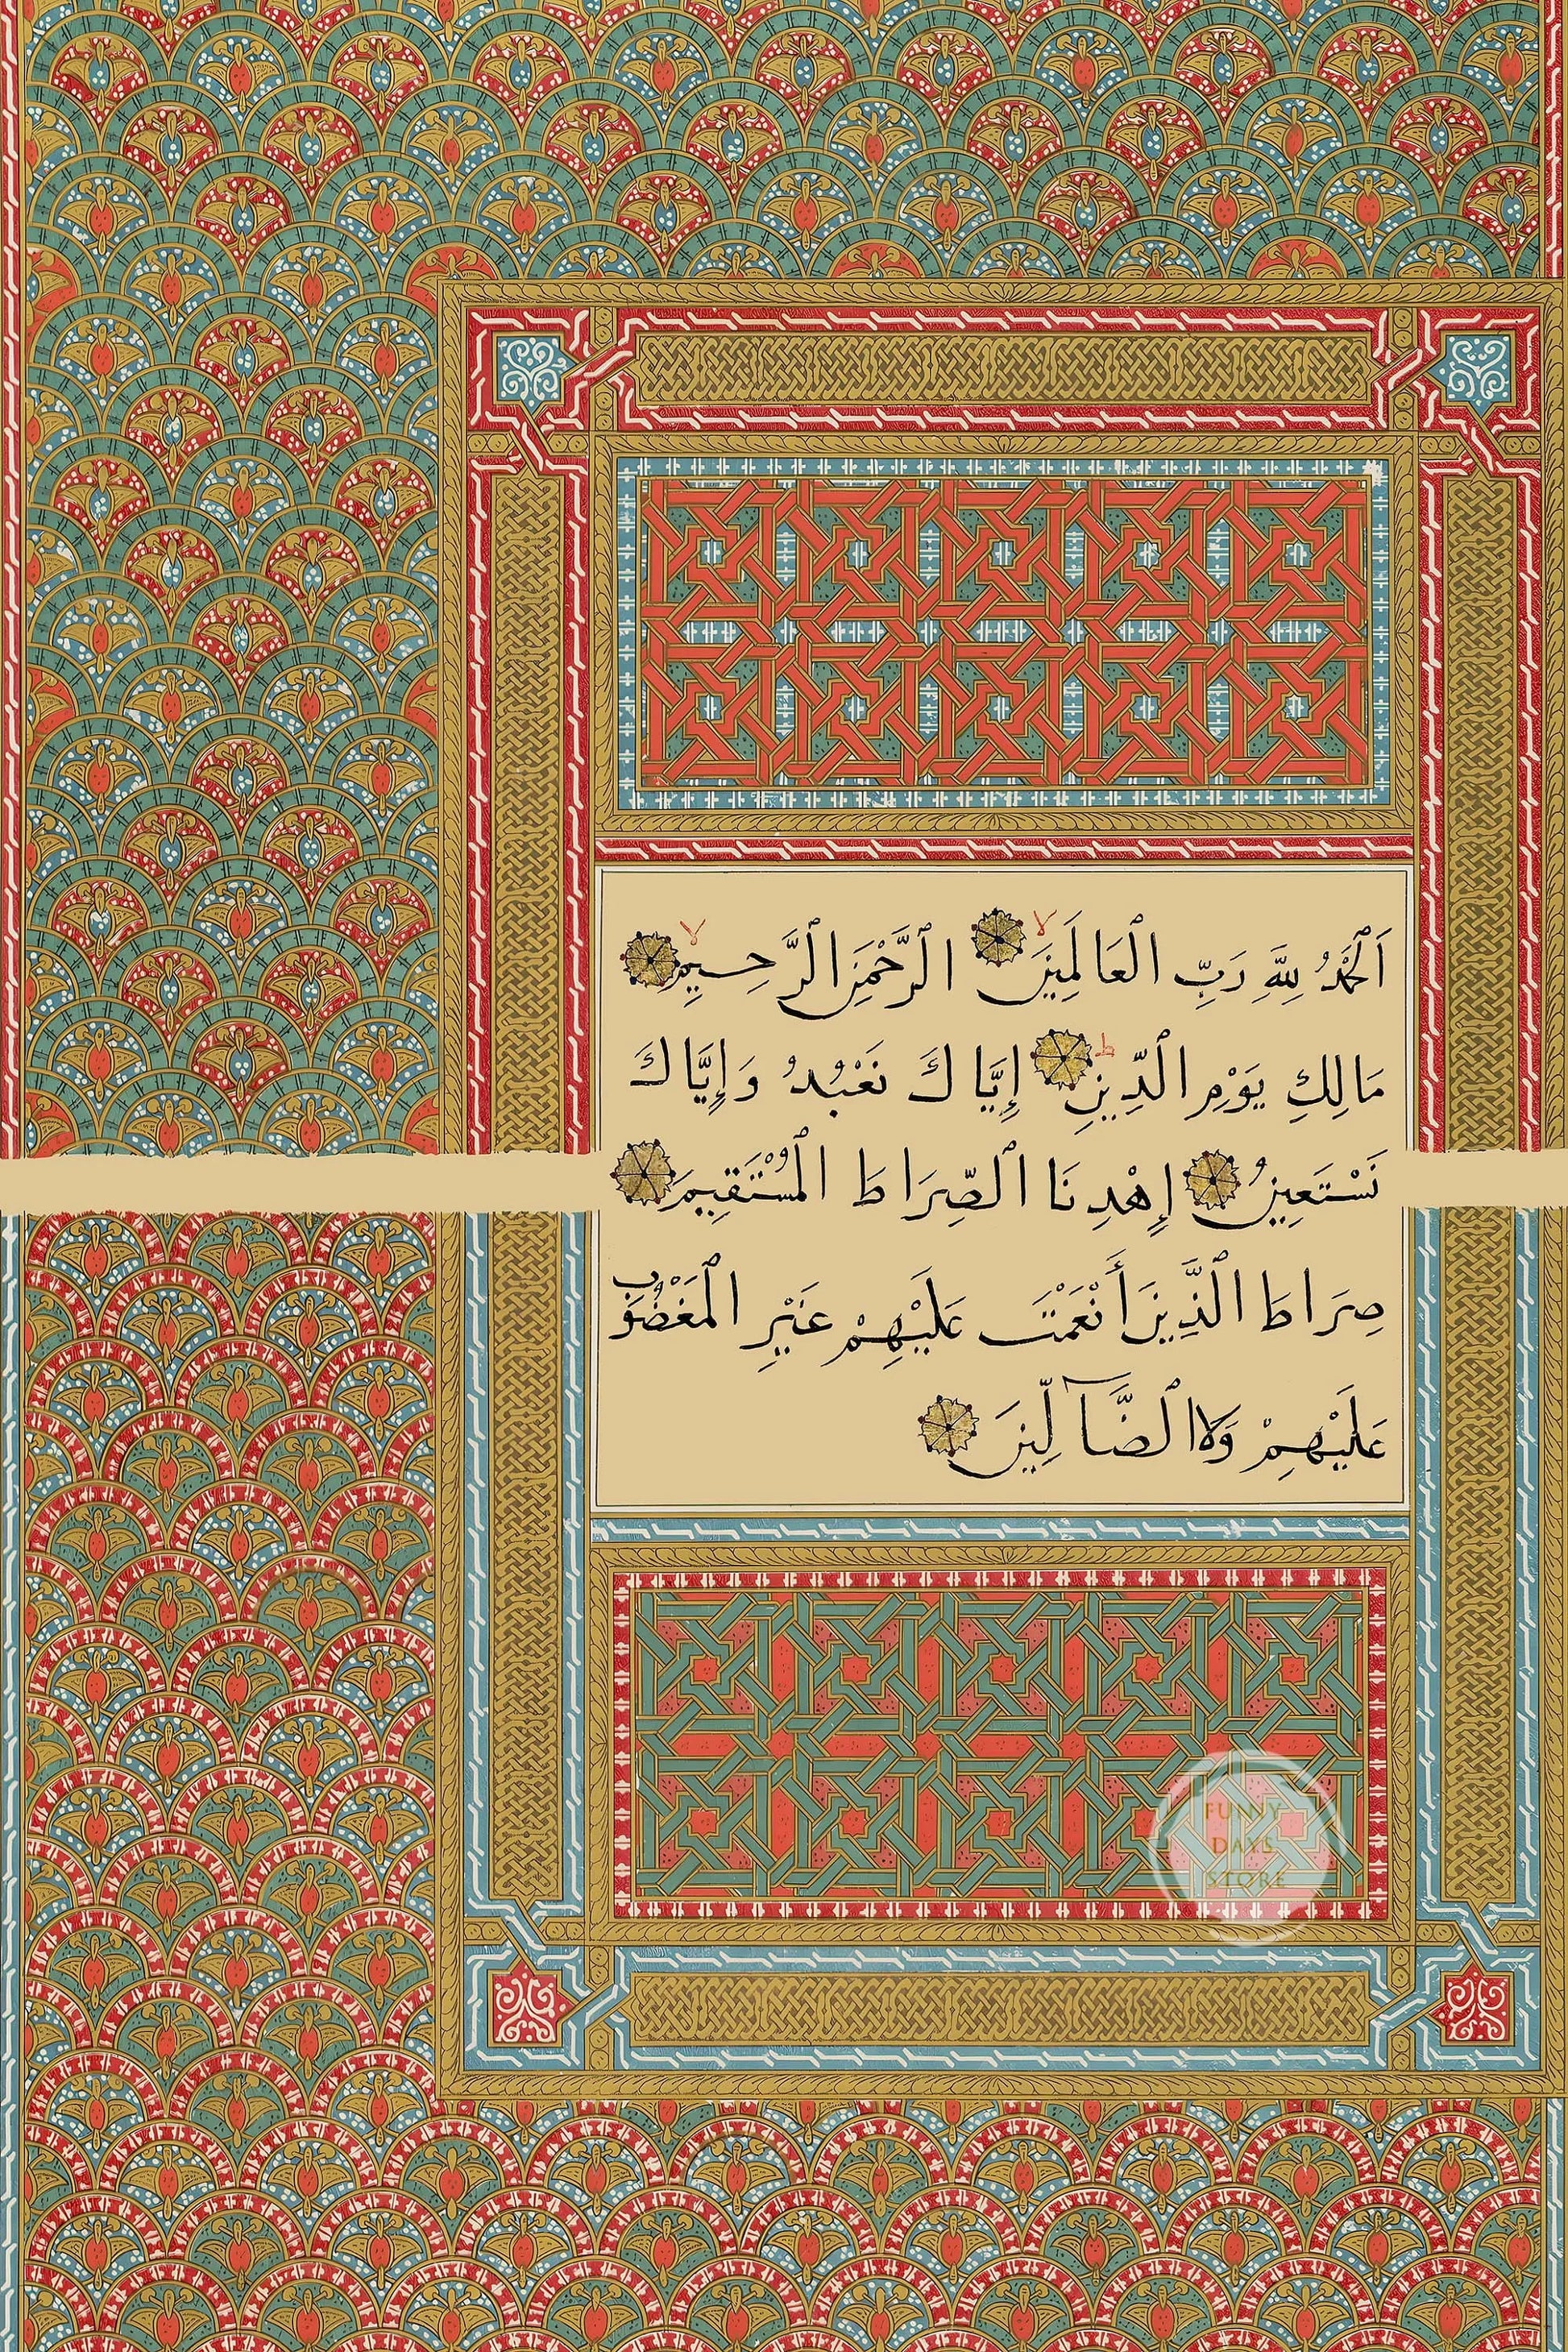 اَلْحَمْدُ لِلَّهِ رَبِّ الْعَالَمِينَ ۙ الرَّحْمٰنِ الرَّحِيمِ ۙ
مَالِكِ يَوْمِ الدِّينِ ۗ إِيَّاكَ نَعْبُدُ وَإِيَّاكَ
نَسْتَعِينُ إِهْدِنَا الصِّرَاطَ الْمُسْتَقِيمَ
صِرَاطَ الَّذِينَ أَنْعَمْتَ عَلَيْهِمْ غَيْرِ الْمَغْضُوبِ
عَلَيْهِمْ وَلَا الضَّآلِّينَ
FUNNY
DAYS
STORE